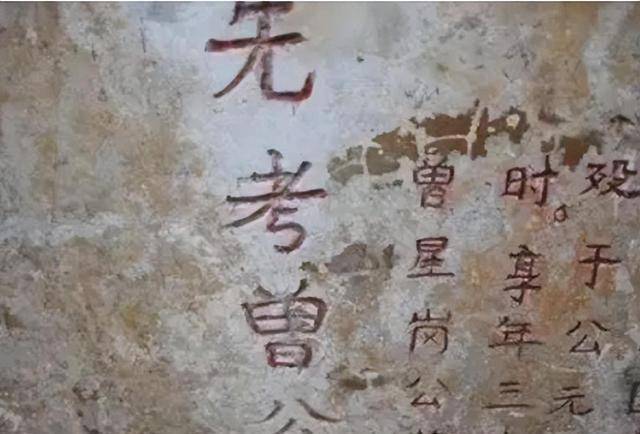 殁于公元
时。享年三
曾星岗公
先考曾公